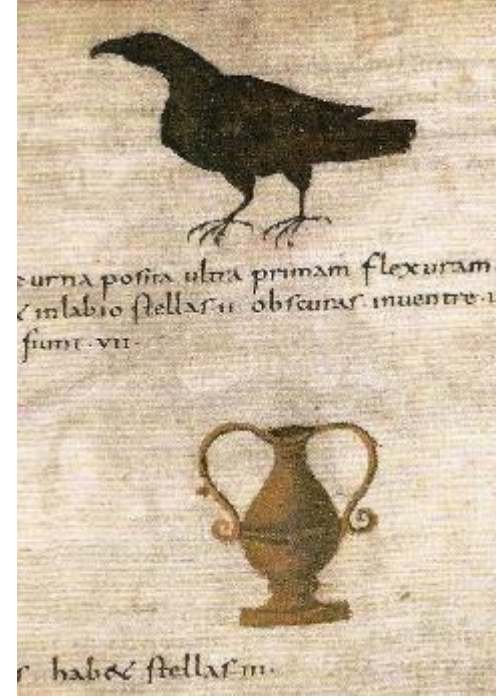 urna posita ultra primam flexuram
inlabio stellas ii obscuras inventre
sunt vii
habet stellas iii